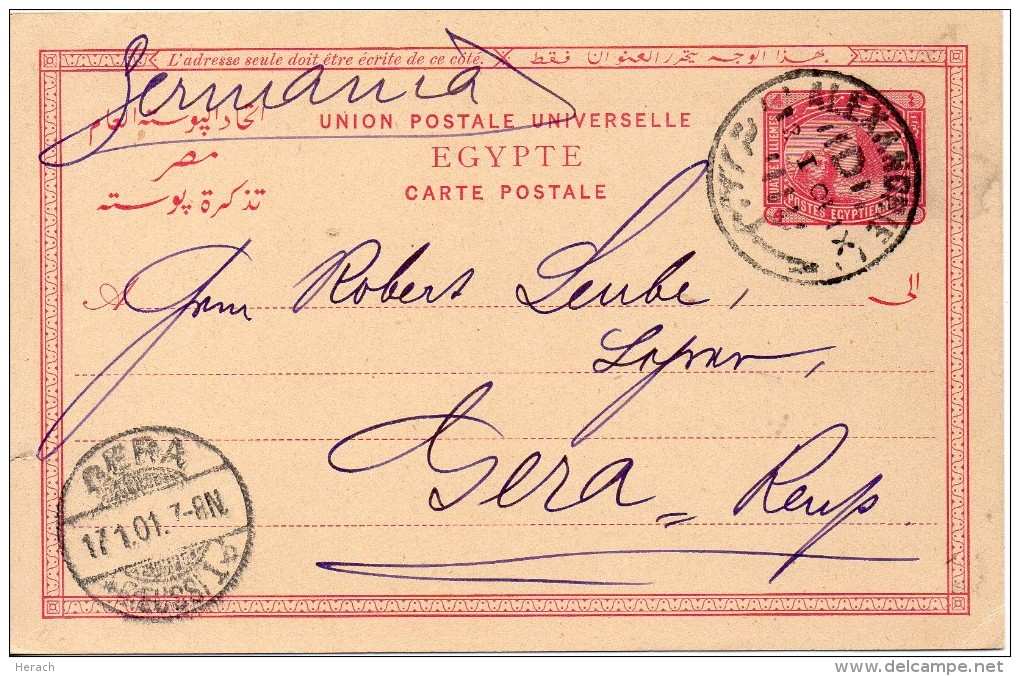 L'adresse seule doit être écrite de ce côté.
بهذا الوجه يتحرر العنوان فقط
Germania
اتحاد البوستة العام
UNION POSTALE UNIVERSELLE
مصر
EGYPTE
تذكرة بوسته
CARTE POSTALE
ALEXANDRIE
POSTES EGYPTIENNES
A
الى
Herrn Robert Leube,
Gera = Reuß.
GERA
17.1.01.7-8N.
(REUSS)
Herach
www.delcampe.net